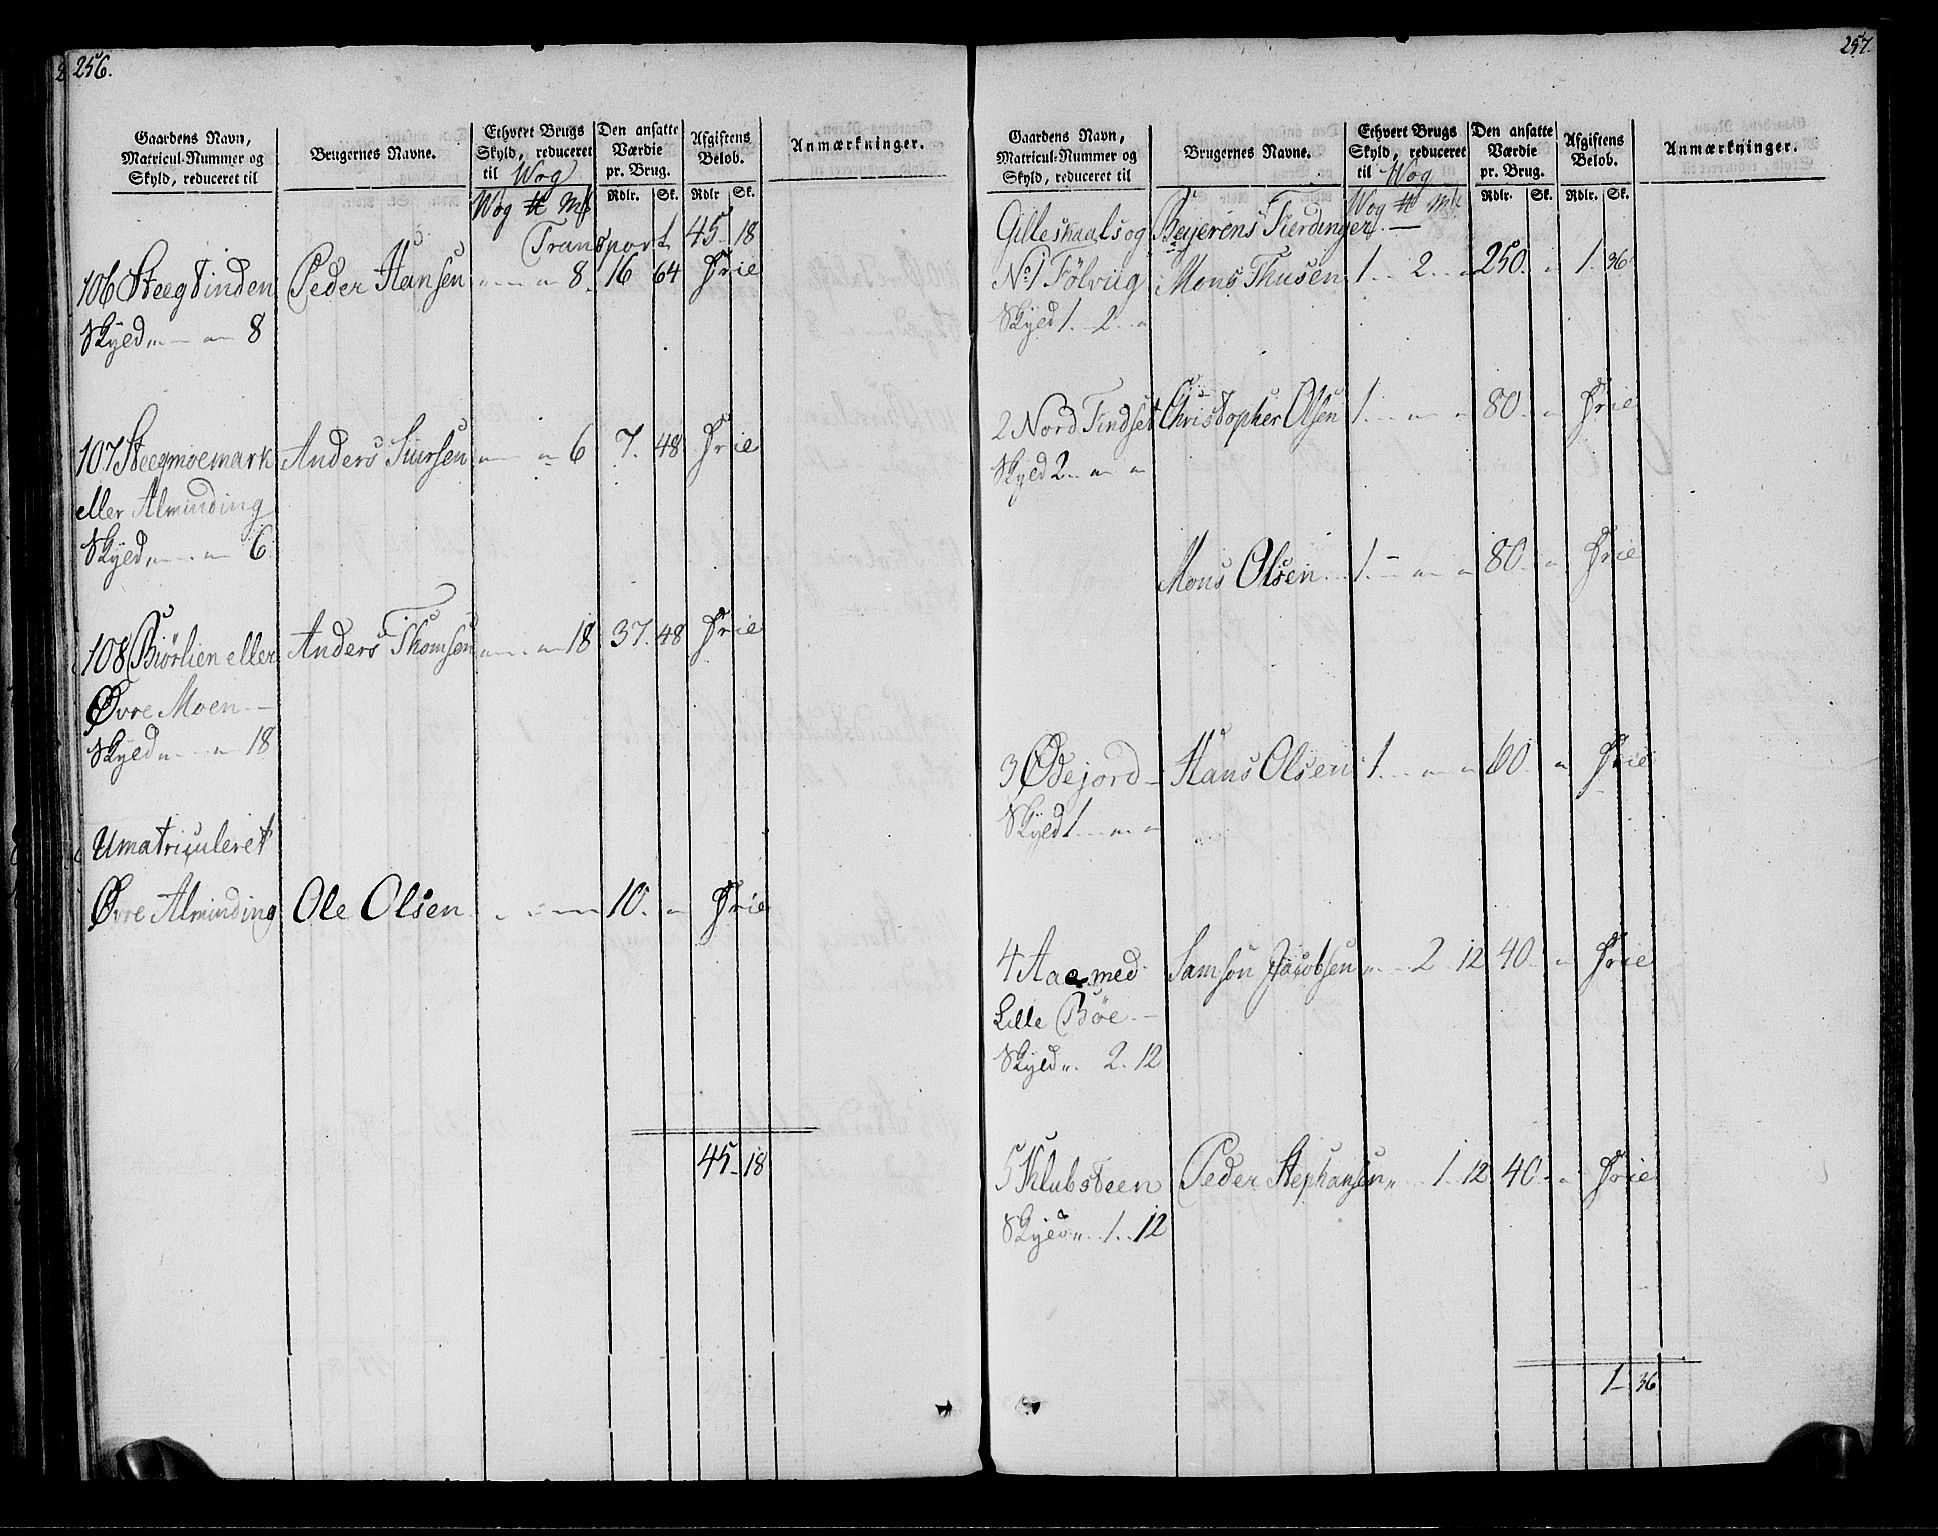 256.
Gaardens Navn, Matricul-Nummer og Skyld, reduceret til
Brugernes Navne.
Ethvert Brugs Skyld, reduceret til Wog
Den ansatte Værdie pr. Brug.
Afgiftens Beløb.
Anmærkninger.
Wog ℔ Mk
Rdlr. Sk. Rdlr Sk.
Transport 45 18
106 Steegtinden Peder Hansen " — " 8. 16 64 Frie
Skyld " — " 8
107 Steegmoemark Anders Siursen " — " 6 7. 48 Frie
eller Alminding
Skyld " — " 6
108 Biørlien eller Anders Thomsen " — " 18 37. 48 Frie
Øvre Moen —
Skyld " — " 18
Umatriculeret
Øvre Alminding Ole Olsen " — " 10. " Frie
45 18
257.
Gaardens Navn, Matricul-Nummer og Skyld, reduceret til
Brugernes Navne.
Ethvert Brugs Skyld, reduceret til Wog
Den ansatte Værdie pr. Brug.
Afgiftens Beløb.
Anmærkninger.
Wog ℔ Mk
Rdlr. Sk. Rdlr. Sk.
Gilleskaals og Beijerens Fierdinger. —
No 1 Følvug Mons Thusen 1 .. 2 .. " 250. " 1. 36
Skyld 1. 2 .. "
2 Nord Findset Christopher Olsen 1. — " " 80. " Frie
Skyld 2 " "
Mons Olsen 1. — " " 80. " Frie
3 Ødejord — Hans Olsen 1. — " " 60. " Frie
Skyld 1 — " "
4 Aae med Samson Jacobsen " 2 12 40. " Frie
Lille Bøe —
Skyld " 2. 12
5 Klubsteen Peder Stephansen " 1 12 40. " Frie
Skyld " 1. 12
1 36